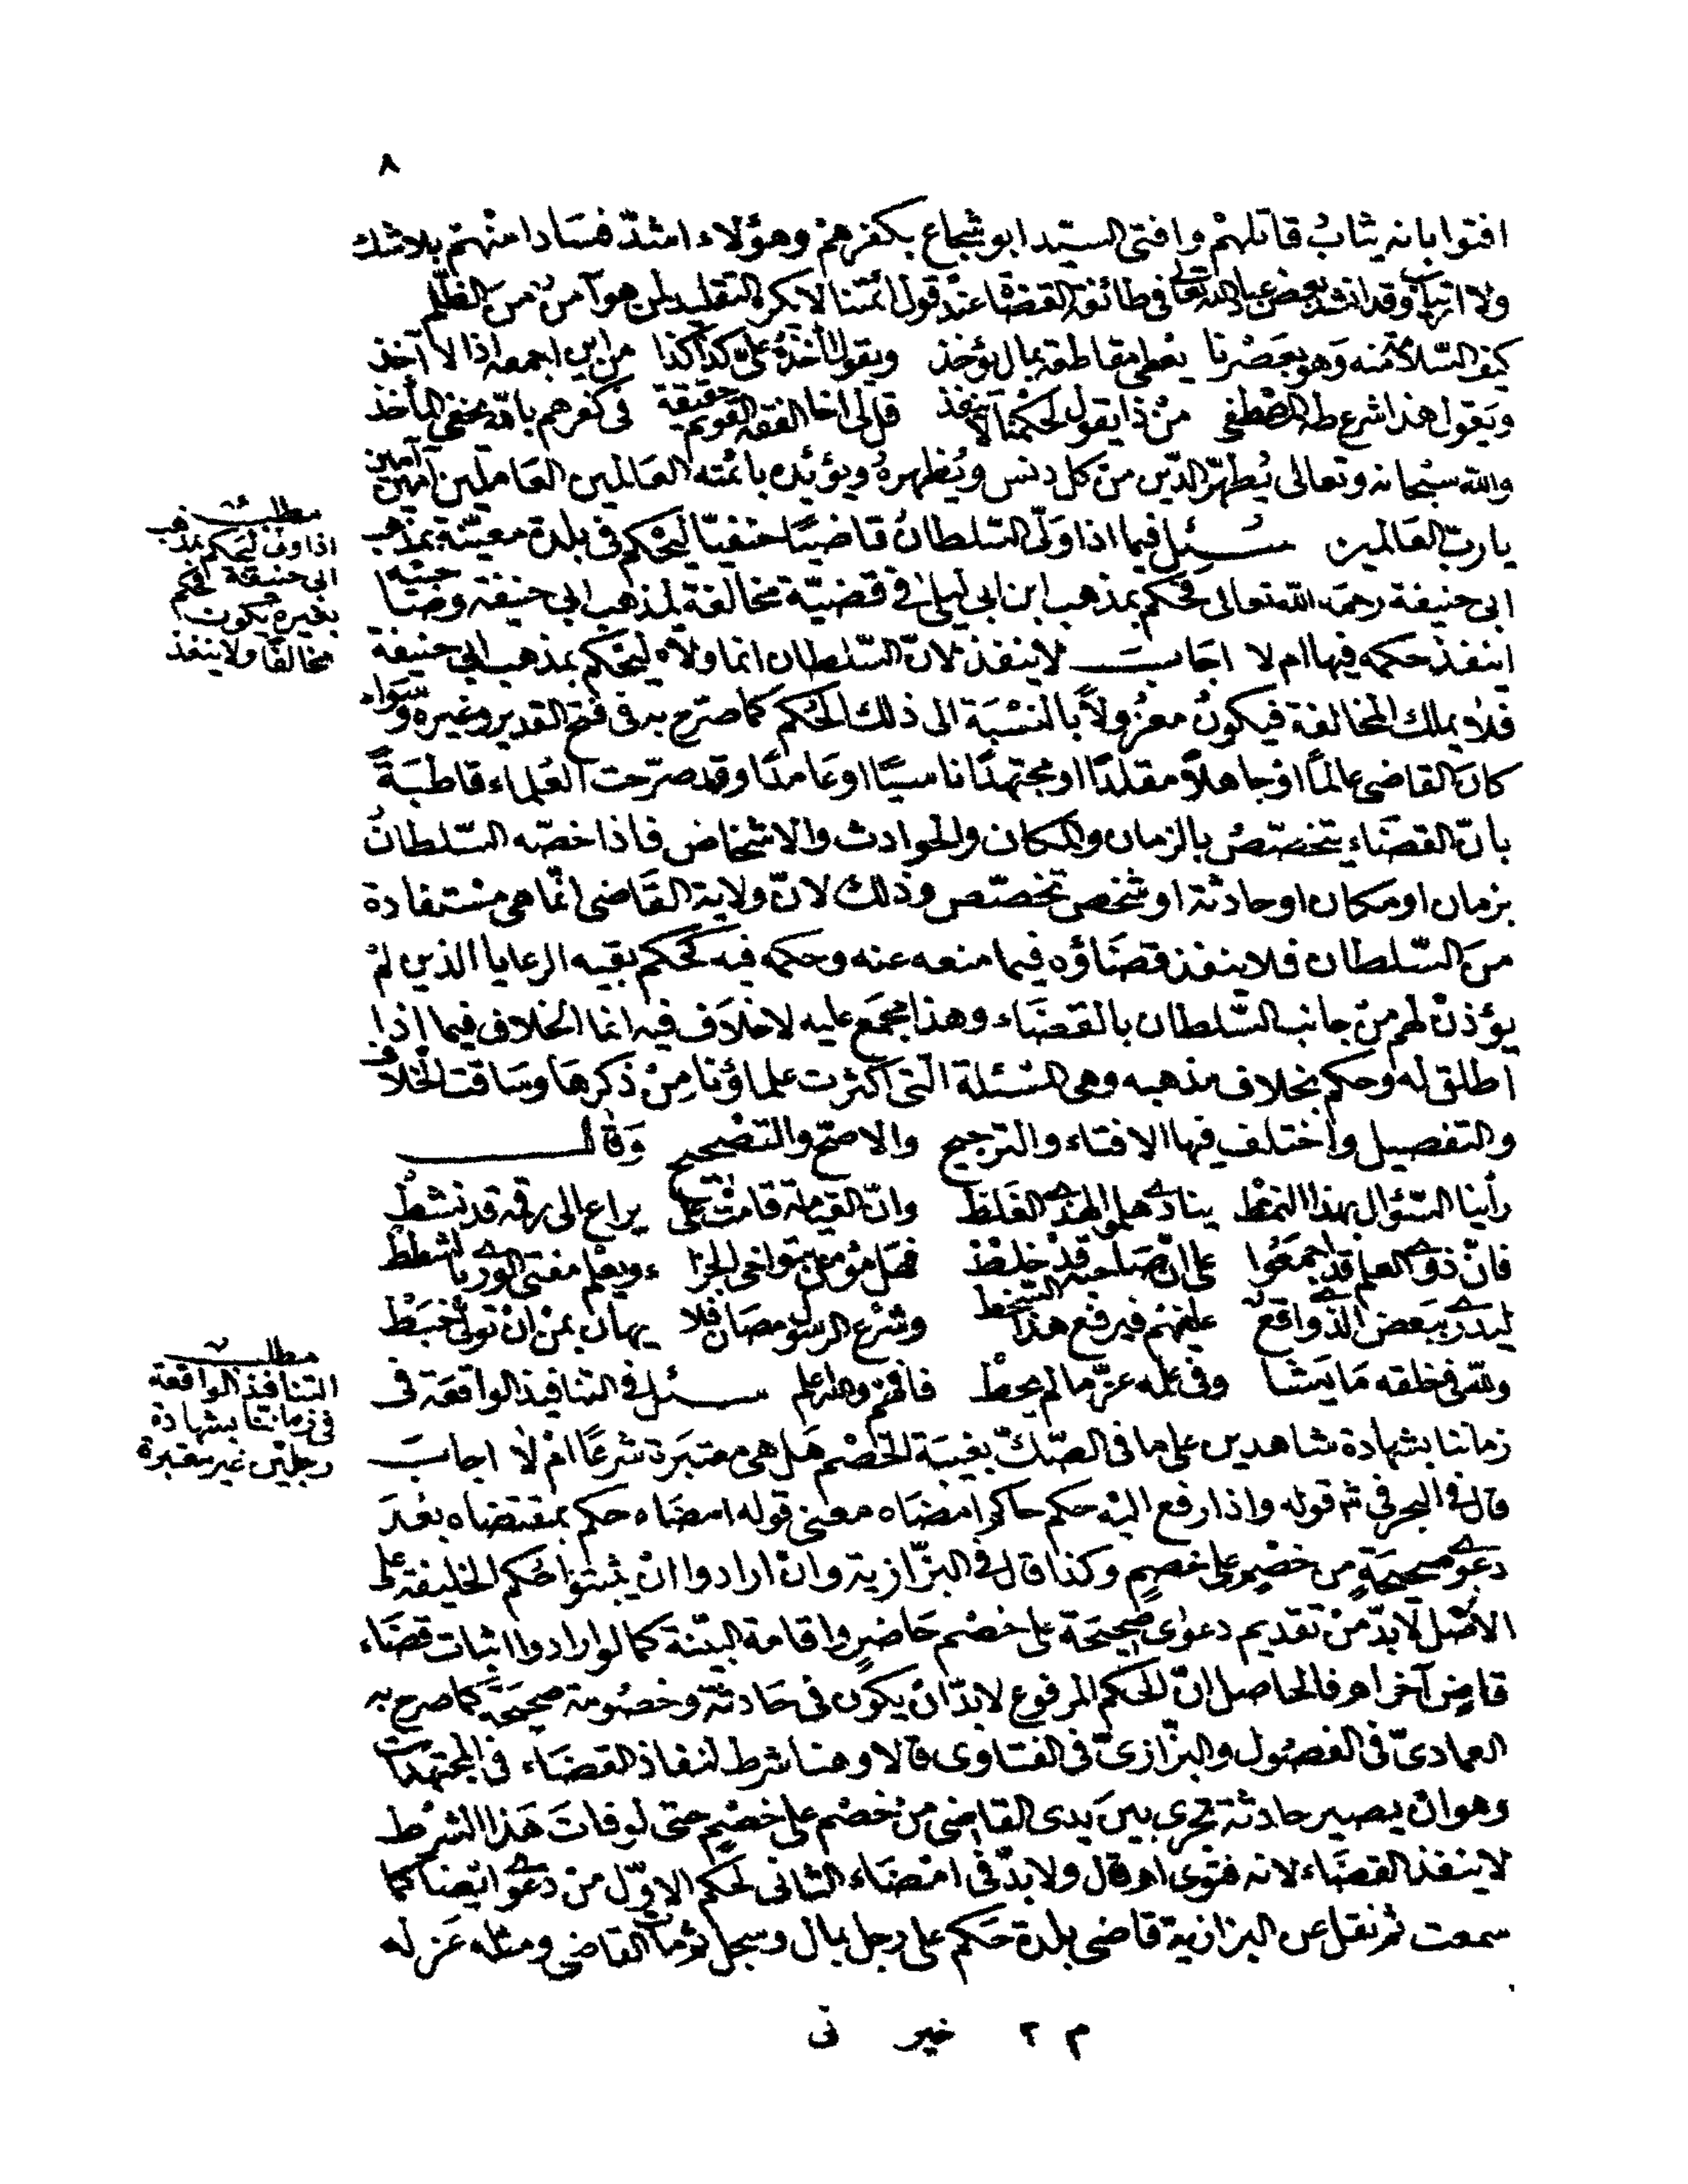 ٨
افتوا بانه يثاب قاتلهم وافتى السيد ابو شجاع بكفرهم وهؤلاء اشد فسادا منهم بلا شك
ولا ارتياب وقد انشد بعض عباد الله تعالى في طائفة القضا عند قول ائمتنا لا يكره التقليد لمن هو آمن من الظلم
كيف السلامة منه وهو بعصرنا يعطى مقاطعة بمال يؤخذ ويقول لاخذه على كذا كذا من اين اجمعه اذا لا آخذ
ويقول هذا شرع طه المصطفى من ذا يقول لحكمنا لا ينفذ قل لى اخا الفقه القويم حقيقة فى كفرهم بالله يخفى المأخذ
والله سبحانه وتعالى يُطهّر الدّين من كل دنس ويُظهره ويؤيده بائمته العالمين العاملين آمين آمين
يا رب العالمين سئل فيما اذا ولّى السلطان قاضيًا حنفيّا ليحكم فى بلدة معينة بمذهب
ابى حنيفة رحمه الله تعالى فحكم بمذهب ابن ابى ليلى فى قضيّة مخالفة لمذهب ابى حنيفة
اينفذ حكمه فيها ام لا اجاب لا ينفذ لانّ السّلطان انما ولاه ليحكم بمذهب ابى حنيفة
فلا يملك المخالفة فيكون معزولاً بالنسبة الى ذلك الحكم كما صرح به فى فتح القدير وغيره وسواء
كان القاضى عالمًا او جاهلاً مقلدًا او مجتهدًا ناسيًا او عامدًا وقد صرّحت العلماء قاطبةً
بانّ القضاء يتخصّص بالزمان والمكان والحوادث والاشخاص فاذا خصّه السّلطان
بزمان او مكان او حادثة او شخص تخصّص وذلك لانّ ولاية القاضى انّما هى مستفادة
من السّلطان فلا ينفذ قضاؤه فيما منعه عنه وحكمه فيه كحكم بقيه الرعايا الذين لم
يؤذن لهم من جانب السّلطان بالقضاء وهذا مجمع عليه لا خلاف فيه انما الخلاف فيما اذا
اطلق له وحكم بخلاف مذهبه وهى المسئلة التى اكثرت علماؤنا من ذكرها وساقت الخلاف
والتفصيل واختلف فيها الافتاء والترجيح والاصح والتصحيح وقال
رأينا السّؤال بهذا النمط ينادى هلموا لهذا الغلط وانّ القيامة قامت على يراع الى رقمه قد نشط
فانّ ذوى العلم قد اجمعوا على ان صاحبه قد خلط فهل مؤمن بتواخى الجزا ويعلم مفتى الورى بالشطط
ليدرى ببعض الذى واقع عليهم فيرفع هذا السخط وشرع الرسول مصان فلا يهان بمن ان تولى خبط
ولله فى خلقه ما يشا وفى علمه عزّ ما لم يحط فافهم والله اعلم سئل فى التنافيذ الواقعة فى
زماننا بشهادة شاهدين على ما فى الصّك بغيبة الخصم هل هى معتبرة شرعًا ام لا اجاب
قال فى البحر فى شرح قوله واذا رفع اليه حكم حاكم امضاه معنى قوله امضاه حكم بمقتضاه بعد
دعوى صحيحةٍ من خصمٍ على خصمٍ وكذا قال فى البزّازية وان ارادوا ان يثبتوا حكم الخليفة على
الاصل لابدّ من تقديم دعوى صحيحة على خصم حاضرٍ واقامة البيّنة كما لو ارادوا اثبات قضاء
قاضٍ آخر اهـ فالحاصل انّ الحكم المرفوع لابدّ ان يكون فى حادثة وخصومة صحيحة كما صرح به
العمادىّ فى الفصول والبزّازىّ فى الفتاوى قالا وهنا شرط لنفاذ القضاء فى المجتهدات
وهو ان يصير حادثة تجرى بين يدى القاضى من خصم على خصمٍ حتى لو فات هذا الشرط
لا ينفذ القضاء لانه فتوى اهـ قال ولابدّ فى امضاء الثانى لحكم الاوّل من دعوى ايضا كما
سمعت ثم نقل عن البزازية قاضى بلدة حكم على رجل بمال وسجل ثم مات القاضى ومثله عزله
مطلب
اذا ولى ليحكم بمذهب
ابى حنيفة فحكم
بغيره يكون
مخالفًا ولا ينفذ
مطلب
التنافيذ الواقعة
فى زماننا بشهادة
رجلين غير معتبرة
م ٢ خير نى